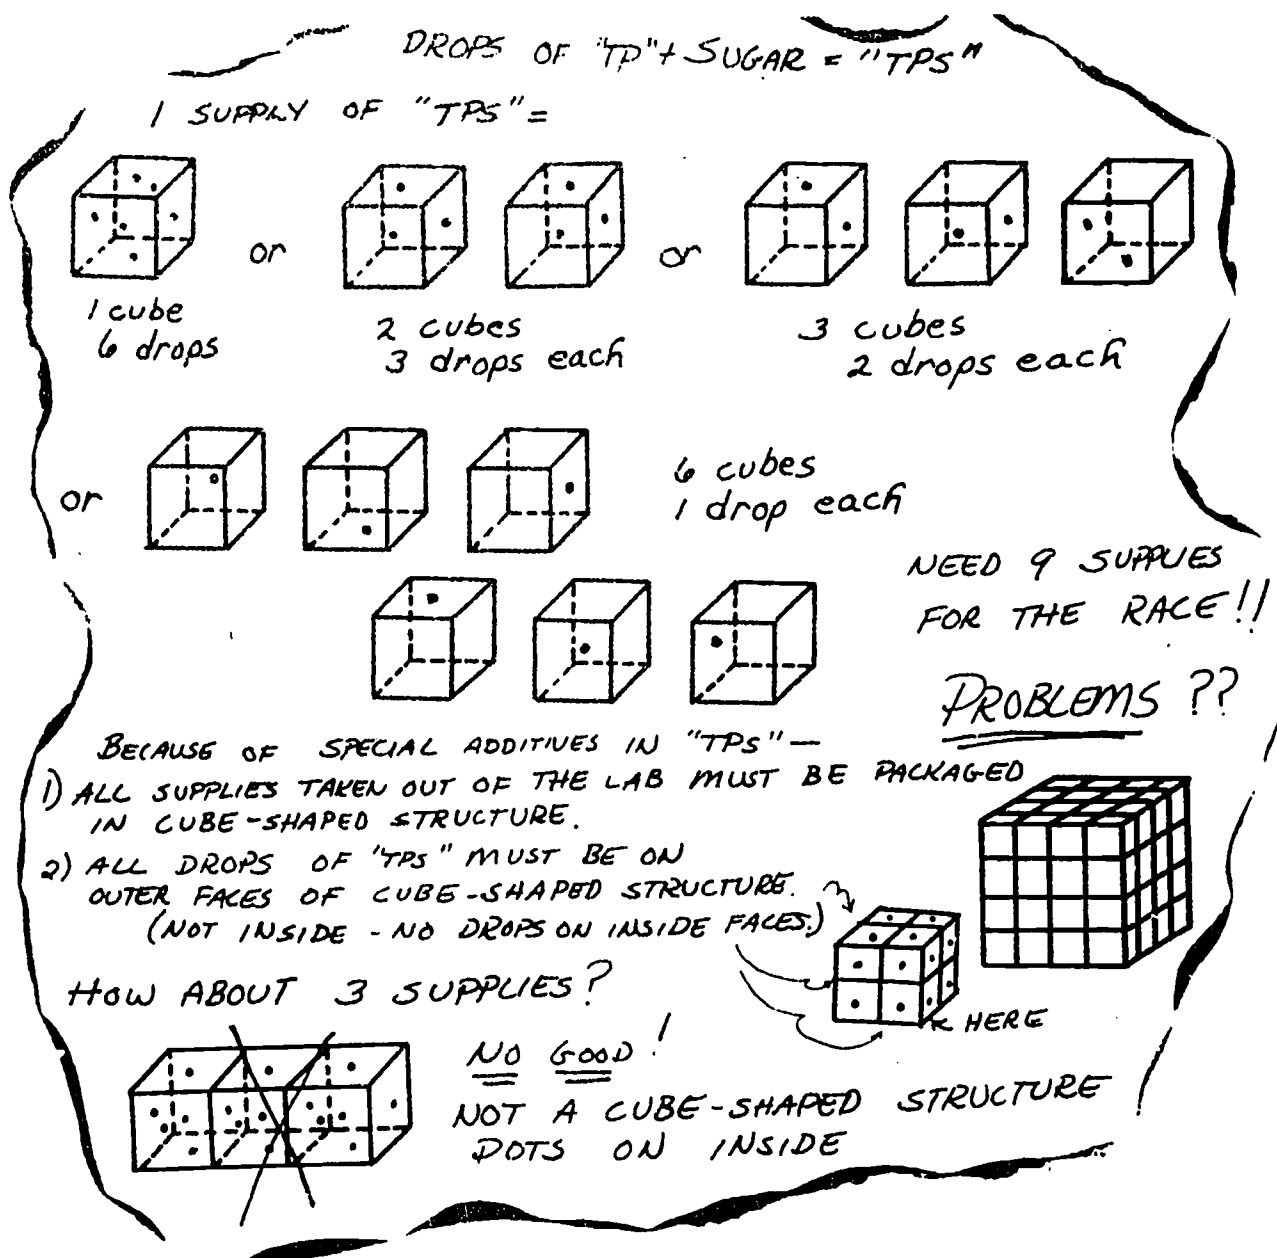 DROPS OF "TP" + SUGAR = "TPS"
1 SUPPLY OF "TPS" =
or
or
1 cube
6 drops
2 cubes
3 drops each
3 cubes
2 drops each
or
6 cubes
1 drop each
NEED 9 SUPPLIES
FOR THE RACE!!
PROBLEMS ??
BECAUSE OF SPECIAL ADDITIVES IN "TPS" —
1) ALL SUPPLIES TAKEN OUT OF THE LAB MUST BE PACKAGED
IN CUBE-SHAPED STRUCTURE.
2) ALL DROPS OF "TPS" MUST BE ON
OUTER FACES OF CUBE-SHAPED STRUCTURE.
(NOT INSIDE - NO DROPS ON INSIDE FACES.)
HERE
HOW ABOUT 3 SUPPLIES?
NO GOOD!
NOT A CUBE-SHAPED STRUCTURE
DOTS ON INSIDE